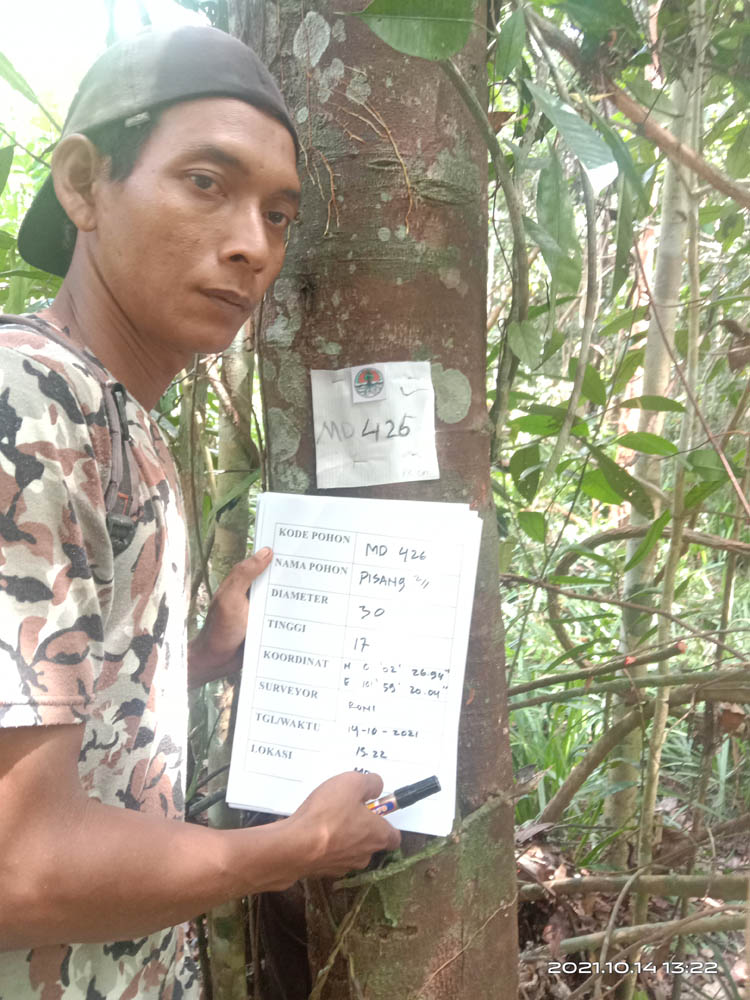 MD 426
KODE POHON MD 426
NAMA POHON PISANG²//
DIAMETER 30
TINGGI 17
KOORDINAT N 0 '02' 26.94"
E 101' 59' 20.04"
SURVEYOR RONI
TGL/WAKTU 14-10-2021
13.22
LOKASI
2021.10.14 13:22